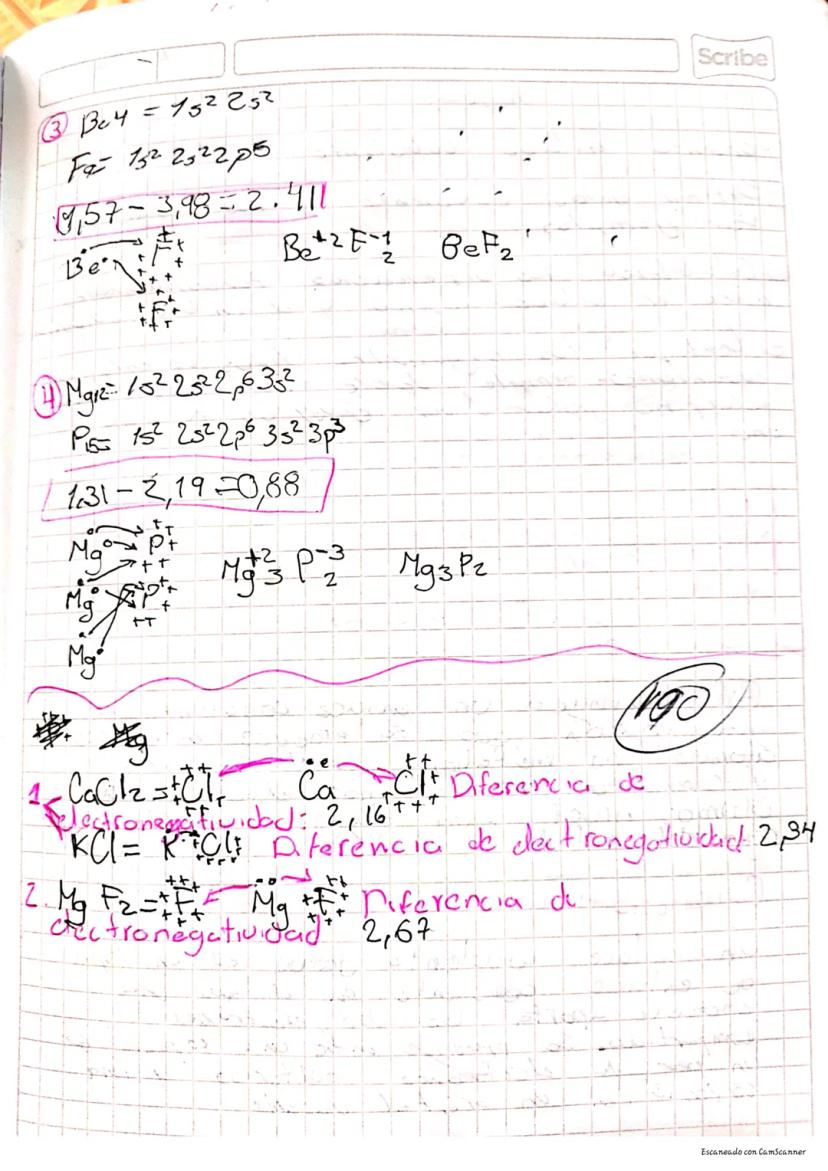 Scribe
③ Be4 = 1s² 2s²
F9= 1s² 2s² 2p⁵
1,57 - 3,98 = 2.41
Be F F Be⁺² F⁻¹₂ BeF₂
④ Mg12= 1s² 2s² 2p⁶ 3s²
P15= 1s² 2s² 2p⁶ 3s² 3p³
1.31 - 2,19 = 0,88
Mg P
Mg P Mg⁺²₃ P⁻³₂ Mg₃P₂
Mg
Mg
1. CaCl2 = Cl Ca Cl Diferencia de
electronegatividad: 2,16
KCl = K Cl Diferencia de electronegatividad 2,34
2. Mg F₂ = F Mg F Diferencia de
electronegatividad 2,67
Escaneado con CamScanner